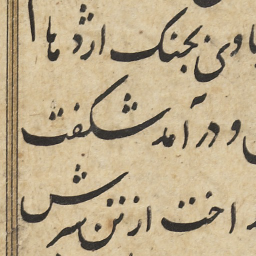 بجنک اژدها
و درآمد شکفت
اخت از تن سرش